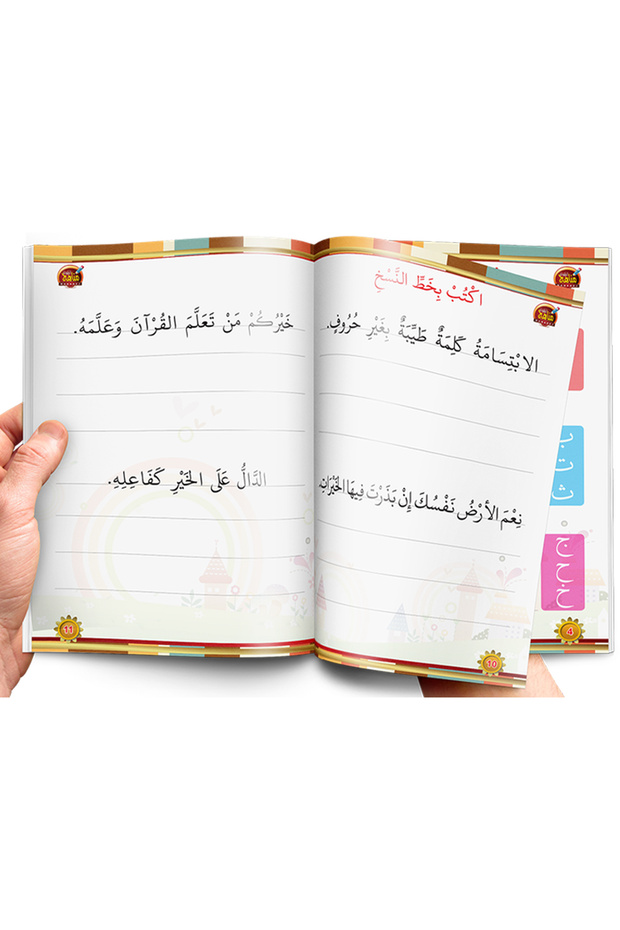 اكْتُبْ بِخَطِّ النَّسْخِ
الابْتِسَامَةُ كَلِمَةٌ طَيِّبَةٌ بِغَيْرِ حُرُوفٍ.
نِعْمَ الأرْضُ نَفْسُكَ إنْ بَذَرْتَ فِيهَا الخَيْرَاتِ.
10
خَيْرُكُمْ مَنْ تَعَلَّمَ القُرْآنَ وَعَلَّمَهُ.
الدَّالُّ عَلَى الخَيْرِ كَفَاعِلِهِ.
11
4